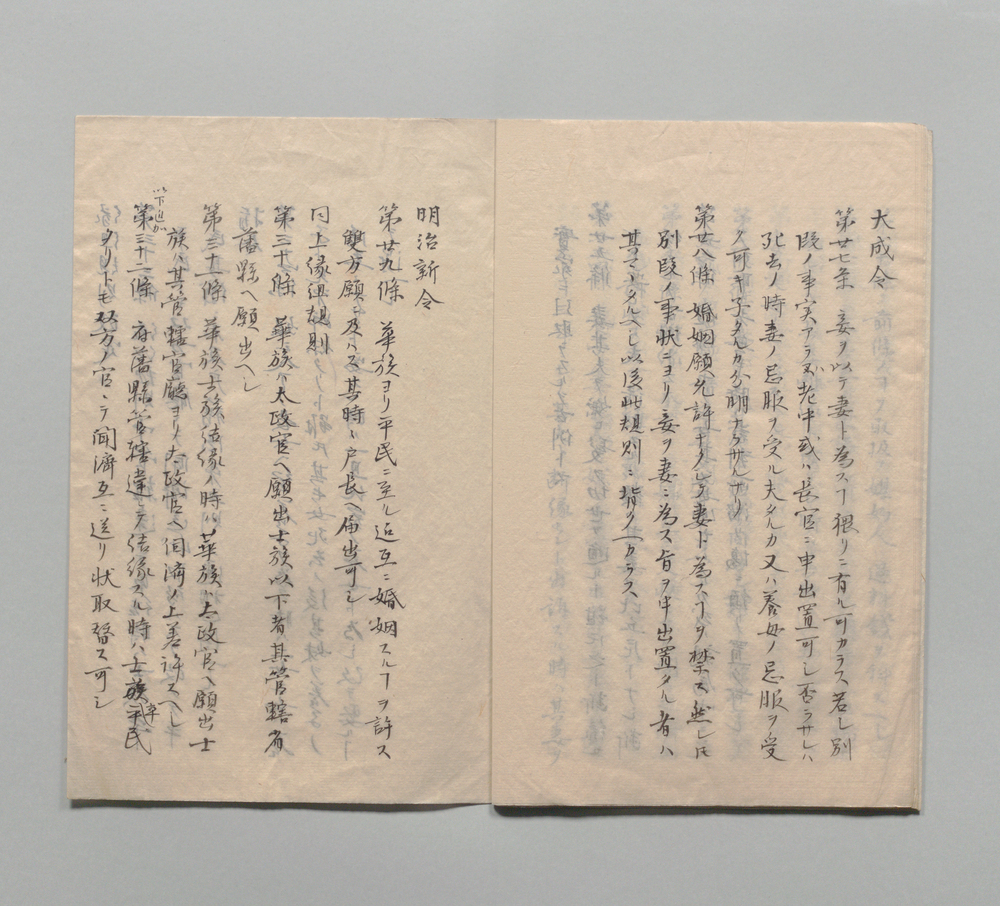 大成令
第廿七条 妾ヲ以テ妻ト為スヿ猥リニ有ル可カラス若シ別
段ノ事実アラハ老中或ハ長官ニ申出置可シ否ラサレハ
死去ノ時妻ノ忌服ヲ受ル夫タルカ又ハ養母ノ忌服ヲ受
ク可キ子タルカ分明ナラサルナリ
第廿八條 婚姻願允許ナクシテ妻ト為スヿヲ禁ス然レ𪜈
別段ノ事状ニヨリ妾ヲ妻ニ為ス旨ヲ申出置タル者ハ
其マヽタルヘシ以後此規則ニ背クヿカラス
明治新令
第廿九條 華族ヨリ平民ニ至ル迄互ニ婚姻スルヿヲ許ス
雙方願ニ及ハス其時々戸長ヘ届出可シ
同上縁組規則
第三十條 華族ハ太政官ヘ願出士族以下者其管轄省
藩縣ヘ願出ヘシ
第三十一條 華族士族結縁ノ時ハ華族ハ太政官ヘ願出士
族ハ其管轄官廳ヨリ太政官ヘ伺濟ノ上差許スヘシ
以下
第三十二條 府藩縣管轄違ニテ結縁スル時ハ士族卒平民
タリトモ双方ノ官ニテ聞濟互ニ送リ状取替ス可シ